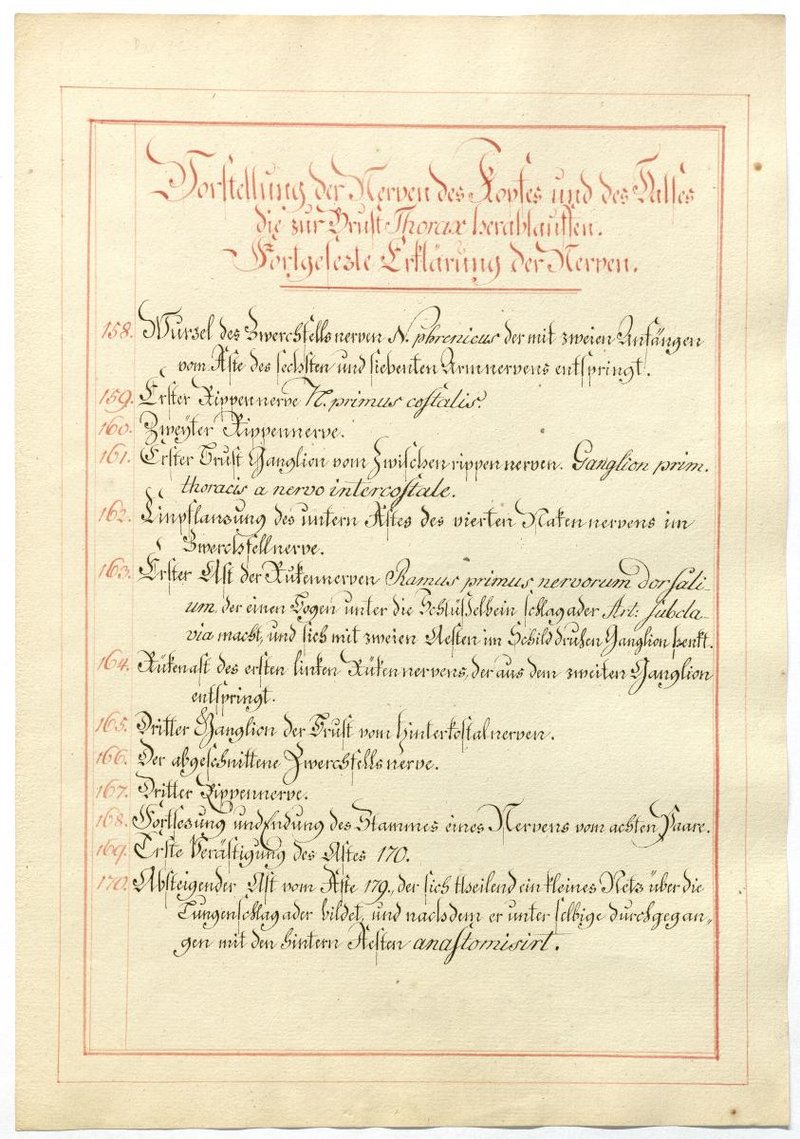 Vorstellung der Nerven des Kopfes und des Halses
die zur Brust Thorax herablauffen.
Fortgesezte Erklärung der Nerven.
158. Wurzel des Zwerchfells nerven N. phrenicus der mit zweien Anfängen
vom Aste des sechsten und siebenten Armnervens entspringt.
159. Erster Rippennerve N. primus costalis.
160. Zweÿter Rippennerve.
161. Erster Brust Ganglion vom Zwischenrippennerven. Ganglion prim.
thoracis a nervo intercostale.
162. Einpflanzung des untern Astes des vierten Nakennervens im
Zwerchfellnerve.
163. Erster Ast der Rükennerven Ramus primus nervorum dorsali-
um der einen Bogen unter die Schlüsselbein schlagader Art: subcla-
via macht, und sich mit zweien Aesten im Schilddrusen Ganglion senkt.
164. Rükenast des ersten linken Rükennervens, der aus dem zweiten Ganglion
entspringt.
165. Dritter Ganglion der Brust vom hinterkostalnerven.
166. Der abgeschnittene Zwerchfellsnerve.
167. Dritter Rippennerve.
168. Fortsezung und Endung des Stammes eines Nervens vom achten Paare.
169. Erste Verästigung des Astes 170.
170. Absteigender Ast vom Aste 179., der sich theilend ein kleines Netz über die
Lungenschlagader bildet, und nachdem er unter selbige durchgegan„
gen mit den hintern Aesten anastomisirt.